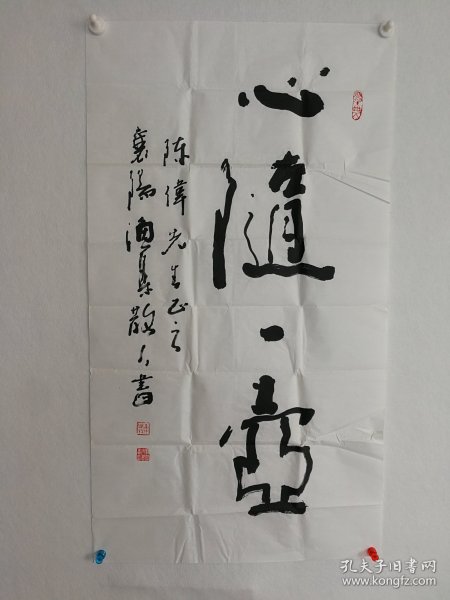 心隨一壺
陈偉先生正之
襄陽酒集散人書
孔夫子旧书网
www.kongfz.com